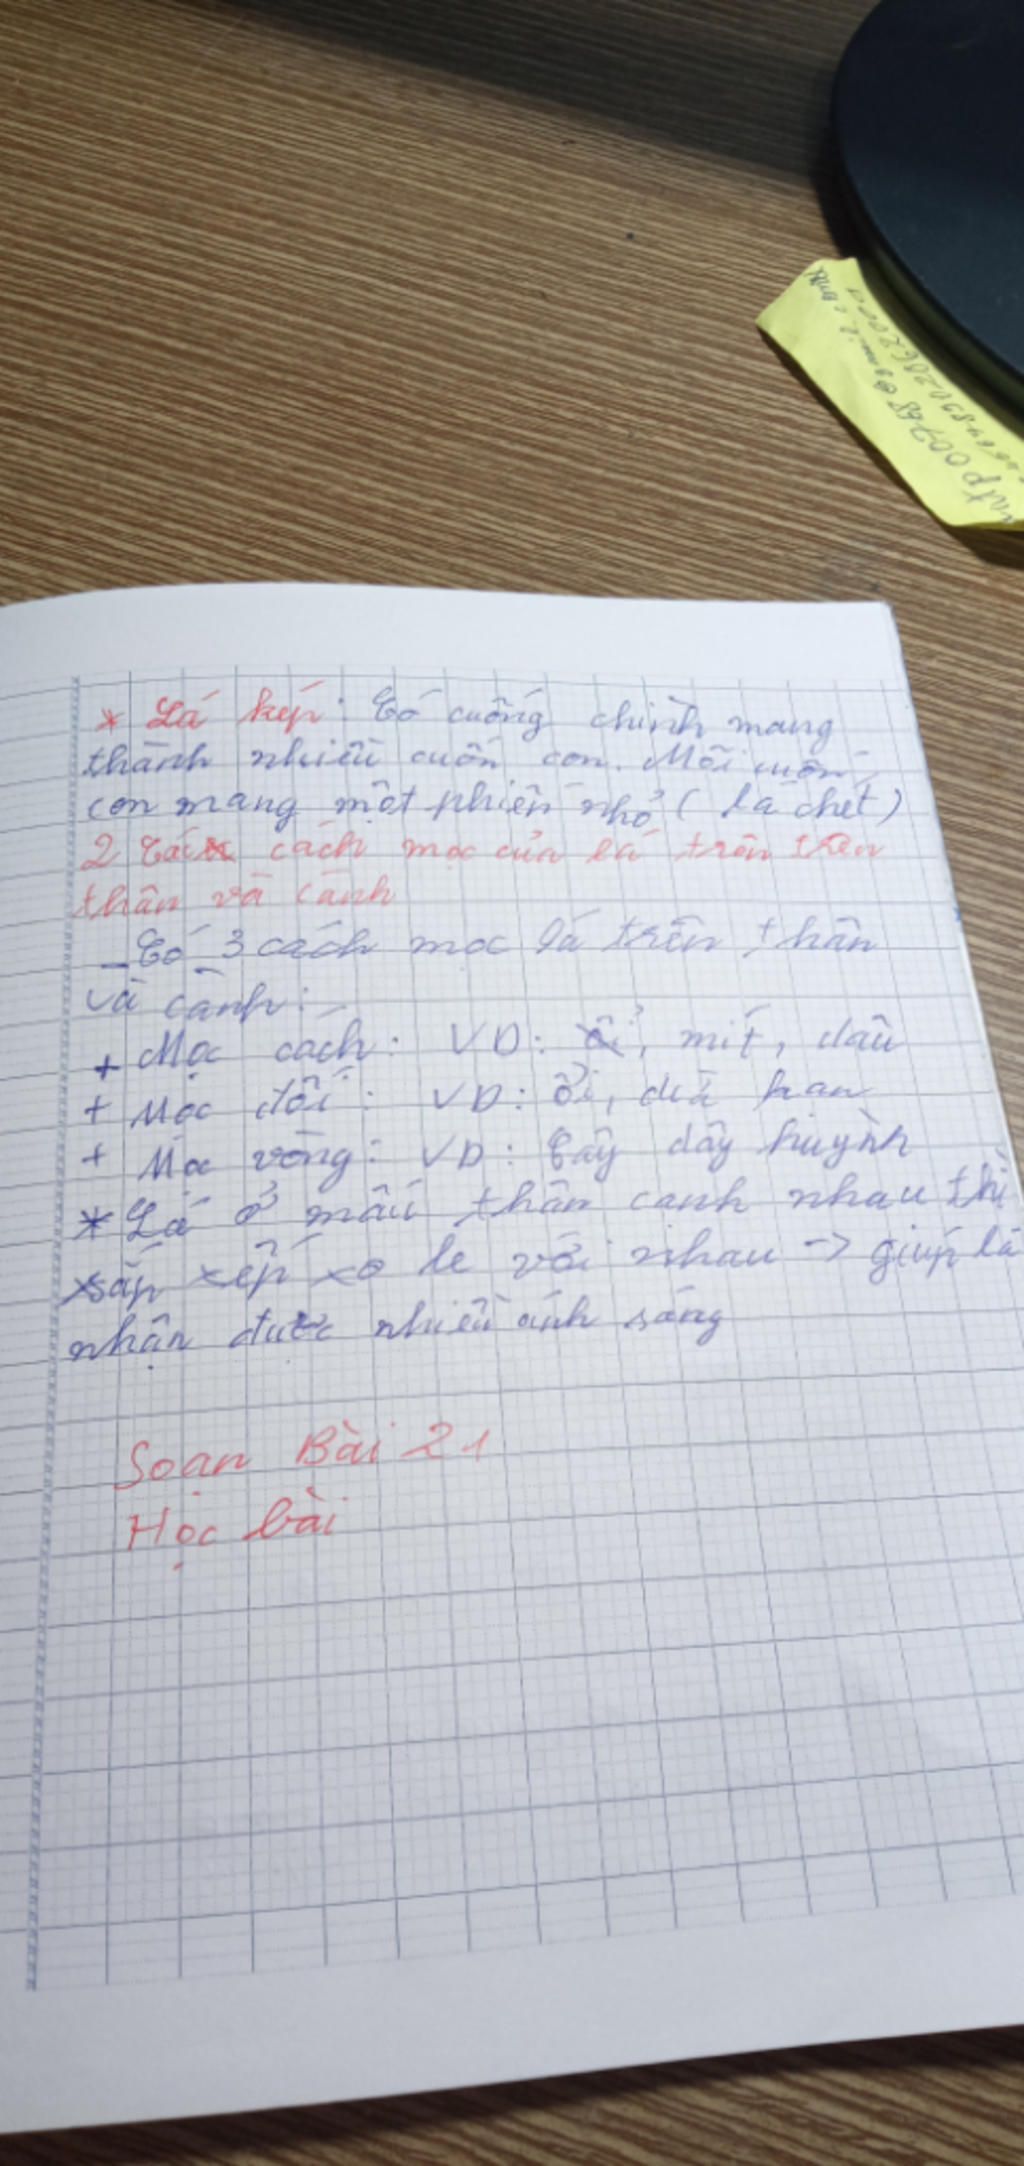 * Lá kép: Có cuống chính mang
thành nhiều cuốn con. Mỗi cuốn
con mang một phiến nhỏ ( lá chét)
2 Các cách mọc của lá trên trên
thân và cành
- Có 3 cách mọc lá trên thân
và cành:
+ Mọc cách: VD: ổi, mít, dâu
+ Mọc đối: VD: ổi, dừa hạn
+ Mọc vòng: VD: Cây dây huỳnh
* Lá ở mấu thân cạnh nhau thì
sắp xếp xo le với nhau -> giúp lá
nhận được nhiều ánh sáng
Soạn Bài 21
Học bài